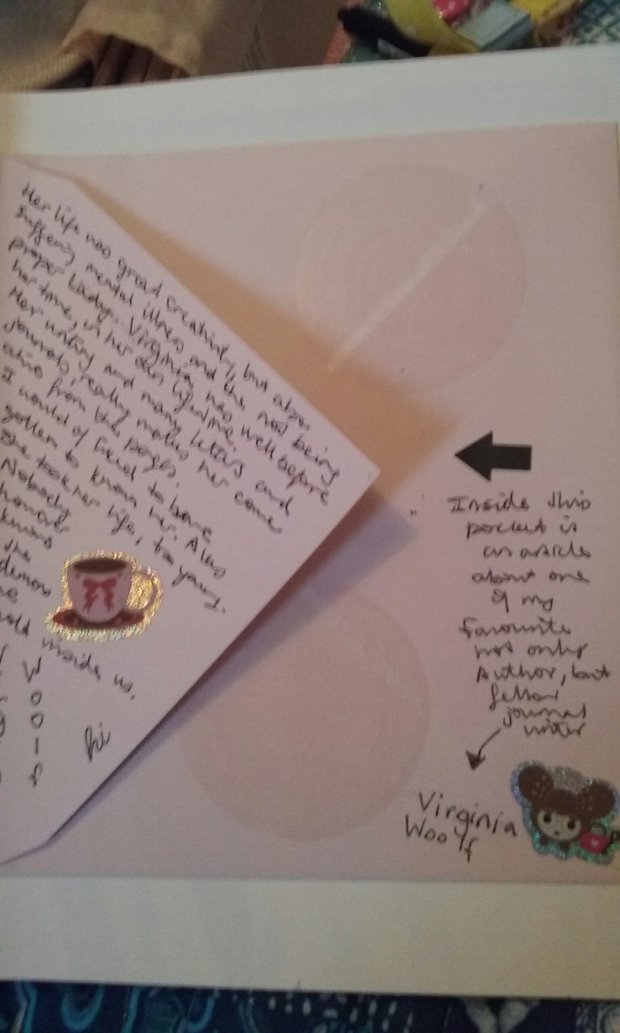 Her life was great creativity, but also
suffering mental illness and the not being
proper Lady. Virginia was well before
her time, in her own lifetime.
Her writing and many letters and
journals, really makes her come
alive from the pages.
I would of loved to have
gotten to know her. Alas
she took her life, too young.
Nobody
however
knows
the
demons
we
hold inside us.
W
o
o
l
f
Inside this
pocket is
an article
about one
of my
favourite
not only
Author, but
fellow
journal
writer
Virginia
Woolf